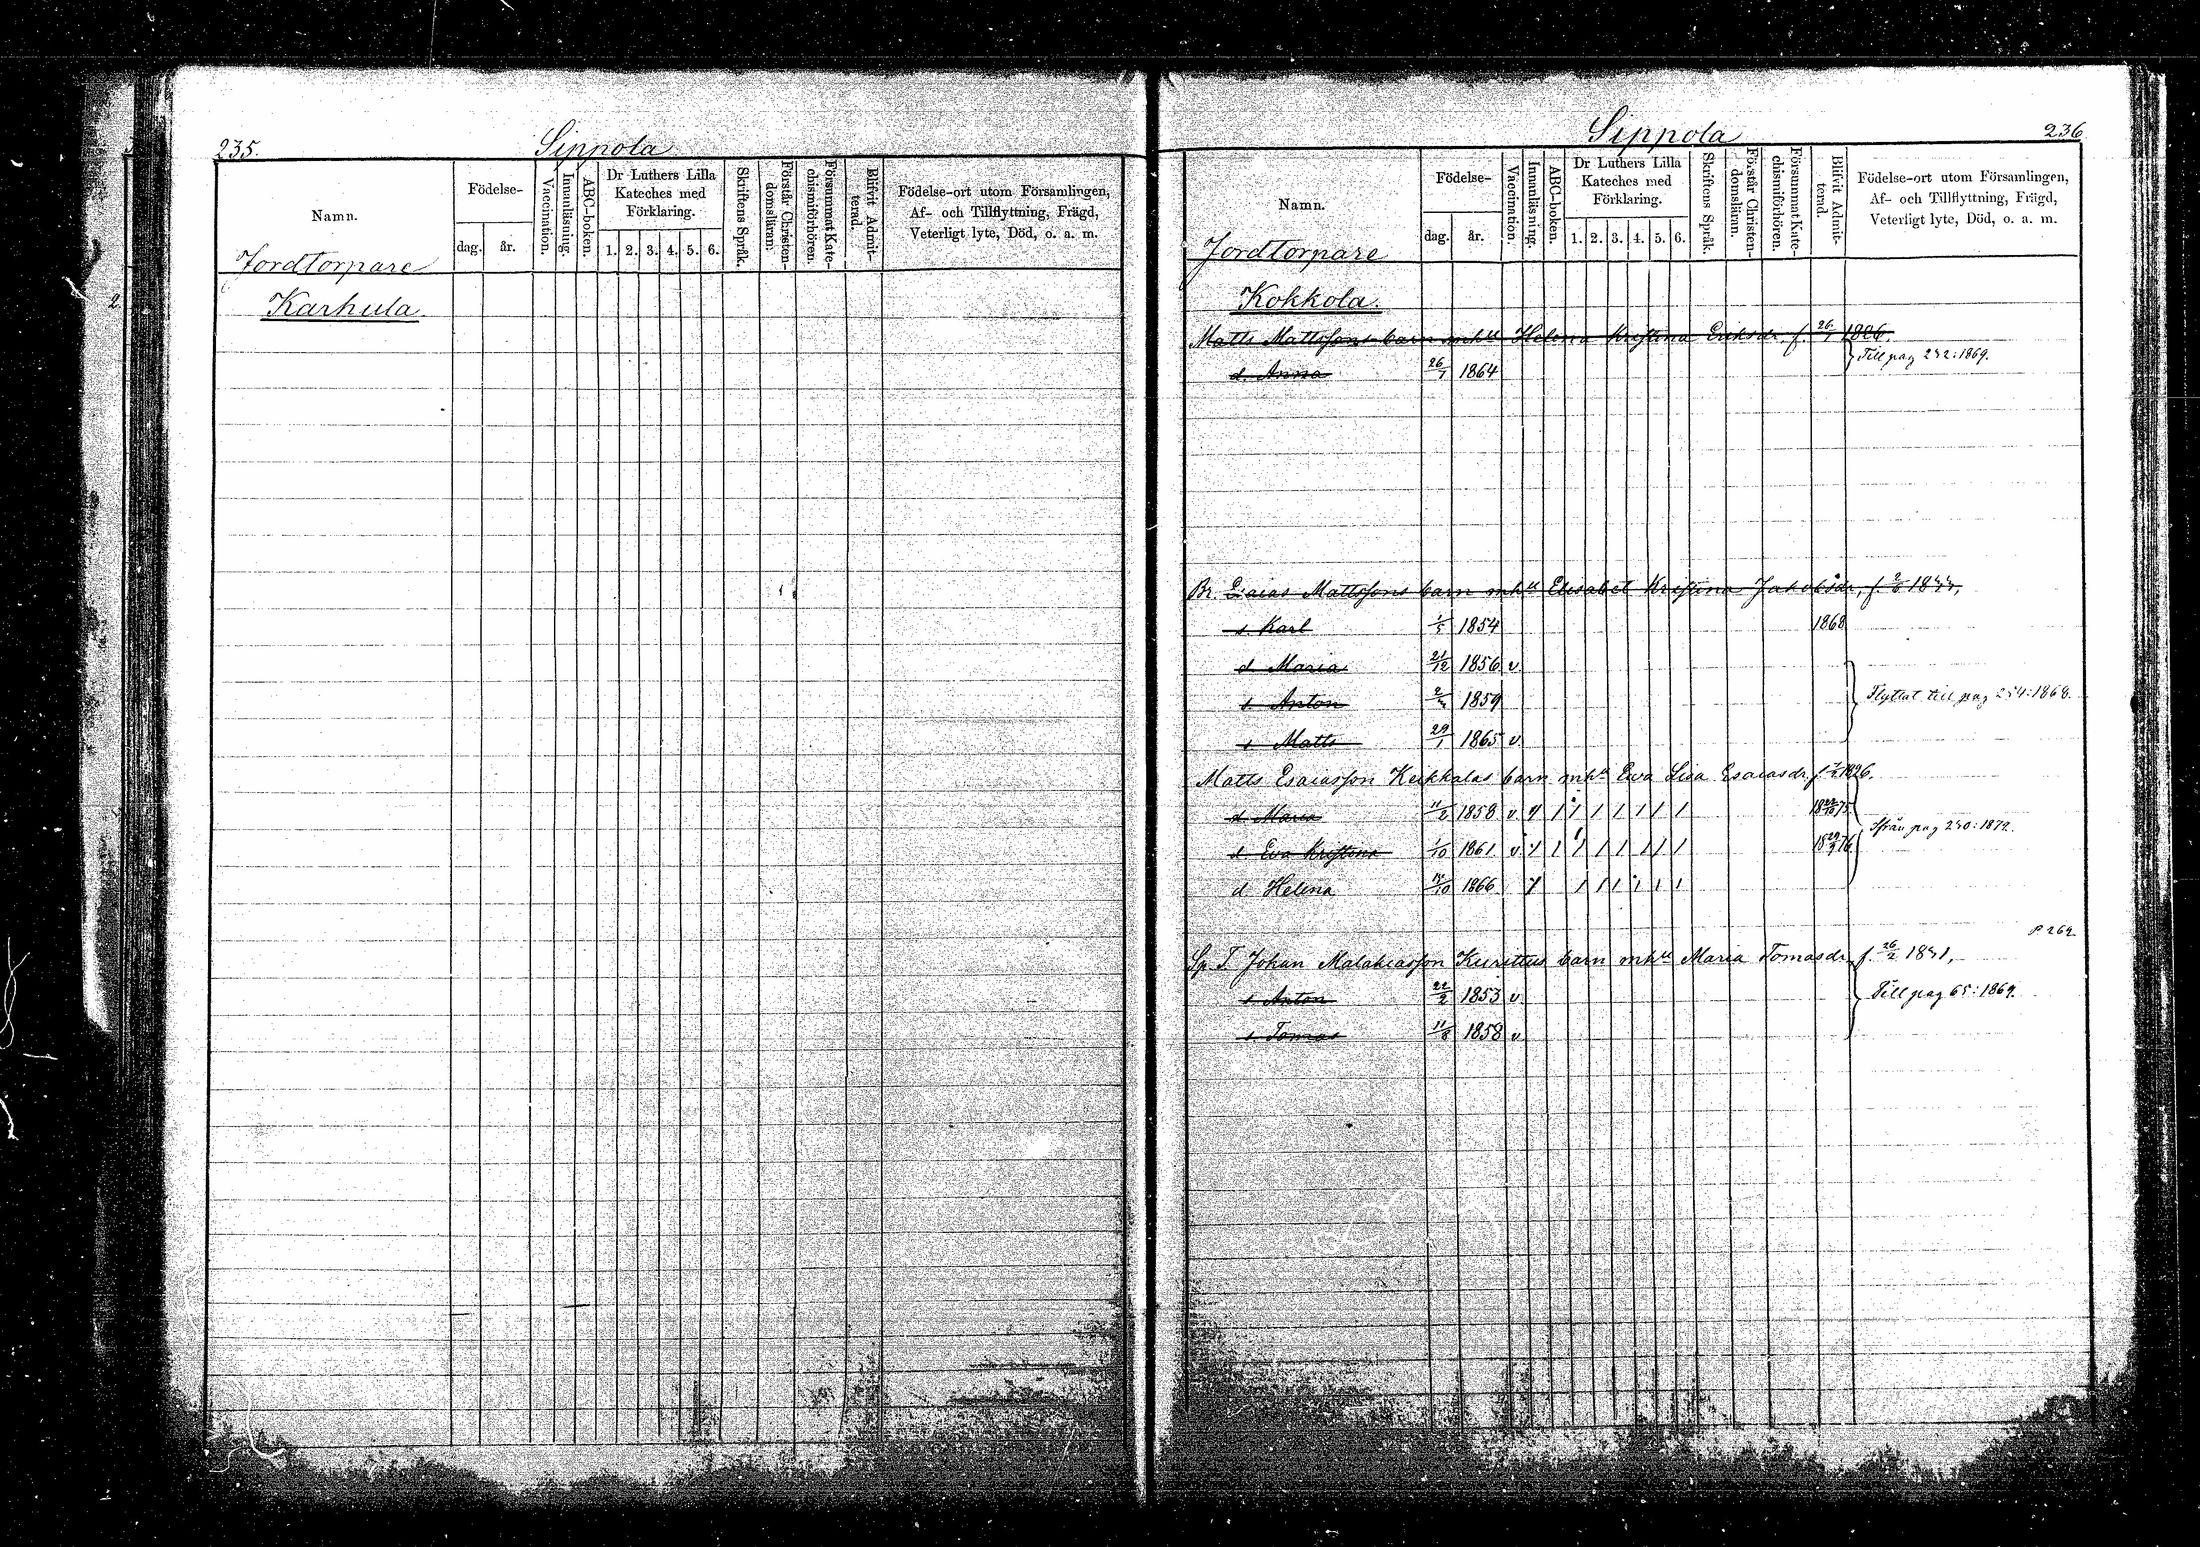 235.
Sippola
Namn.
Födelse-
dag.
år.
Vaccination.
Innanläsning.
ABC-boken.
Dr Luthers Lilla
Kateches med
Förklaring.
1. 2. 3. 4. 5. 6.
Skriftens Språk.
Förstår Christen-
domsläran.
Försummat Kate-
chismiförhören.
Blifvit Admit-
terad.
Födelse-ort utom Församlingen,
Af- och Tillflyttning, Frägd,
Veterligt lyte, Död, o. a. m.
Jordtorpare
Karhula.
Sippola
236
Namn.
Födelse-
dag.
år.
Vaccination.
Innanläsning.
ABC-boken.
Dr Luthers Lilla
Kateches med
Förklaring.
1. 2. 3. 4. 5. 6.
Skriftens Språk.
Förstår Christen-
domsläran.
Försummat Kate-
chismiförhören.
Blifvit Admit-
terad.
Födelse-ort utom Församlingen,
Af- och Tillflyttning, Frägd,
Veterligt lyte, Död, o. a. m.
Jordtorpare
Kokkola.
Matts Mattssons barn mh Helena Kristina Eriksdr, f. 26/7 1806.
d. Anna 26/7 1864 Till pag 232:1869.
Br. Esaias Mattssons barn mh Elisabet Kristina Jakobsdr, f.
s. Karl 1/5 1854 1868
d Maria 21/12 1856 v
s. Anton 1859 Flyttat till pag 234:1868.
s Matts 29/1 1865 v
Matts Esaiasson Keikkalas barn mh Ewa Lisa Esaiasdr, f. 1826.
d Maria 11/2 1858 v / / / / / / / / 18 22/10 75
d Eva Kristina 1/10 1861 v / / / / / / / / 18 29/9 76 Ifrån pag 230:1872.
d Helena 1866 / / / / / / /
P 262
Sp. T. Johan Malakiasson Kurittus barn mh Maria Tomasdr, f. 26/2 1831,
s Anton 22/2 1853 v Till pag 65:1869.
s Tomas 11/8 1858 v